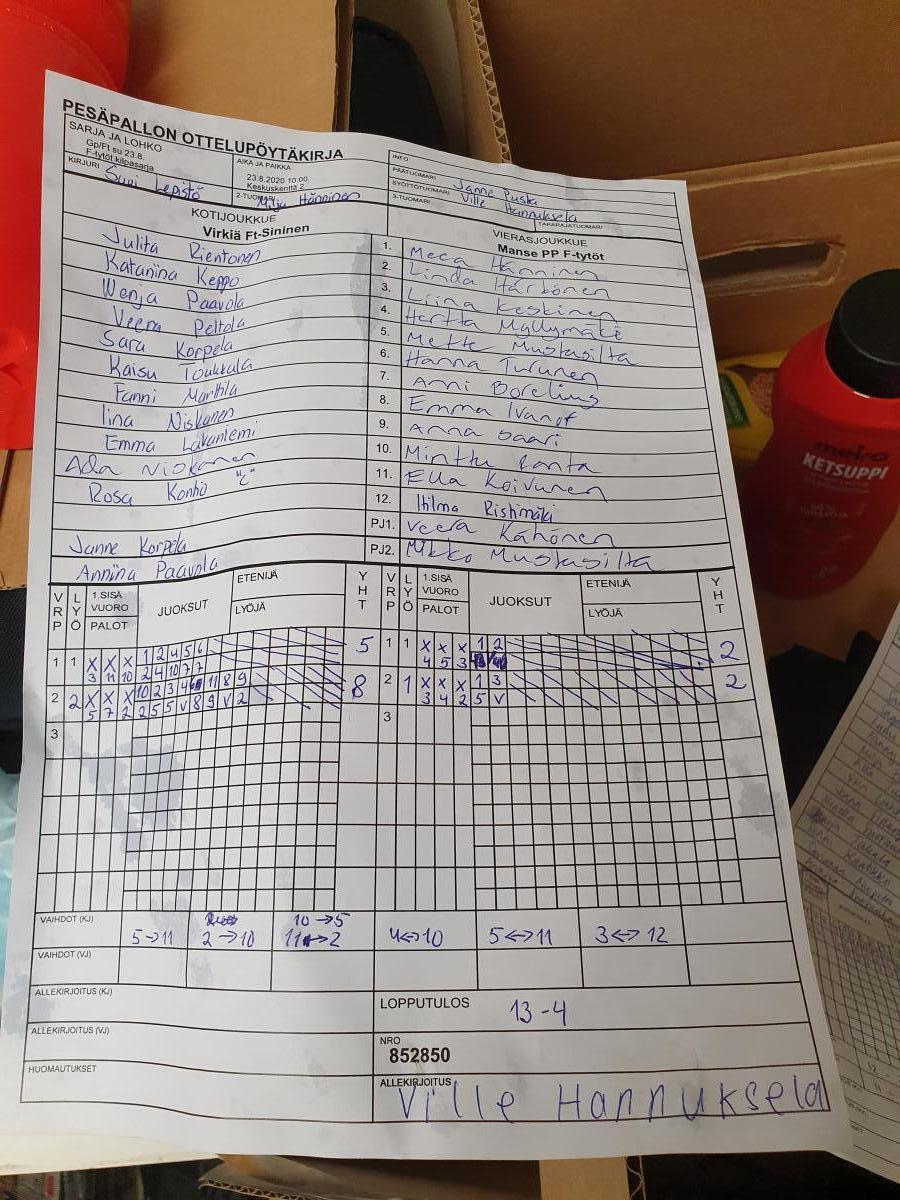 PESÄPALLON OTTELUPÖYTÄKIRJA
SARJA JA LOHKO
Gp/Ft su 23.8.
F-tytöt kilpasarja
AIKA JA PAIKKA
23.8.2020 10:00
Keskuskenttä 2
INFO
PÄÄTUOMARI Janne Puska
SYÖTTÖTUOMARI Ville Hannuksela
KIRJURI Suvi Lepistö
2-TUOMARI Milja Hänninen
3-TUOMARI
TAKARAJATUOMARI
KOTIJOUKKUE
Virkiä Ft-Sininen
VIERASJOUKKUE
Manse PP F-tytöt
Julita Rientonen 1. Meea Hänninen
Katariina Keppo 2. Linda Härbönen
Wenja Paavola 3. Liina Keskinen
Veera Peltola 4. Herttta Myllymäki
Sara Korpela 5. Mette Mustasilta
Kaisu Toukkala 6. Hanna Turunen
Fanni Marttila 7. Anni Borelius
Iina Niskanen 8. Emma Ivanof
Emma Lakaniemi 9. Anna Saari
Ada Niskanen 10. Minttu Ranta
Rosa Konho "L" 11. Ella Koivunen
12. Hilma Ristimäki
Janne Korpela PJ1. Veera Kähönen
Annina Paavola PJ2. Mikko Mustasilta
VRP LYÖ 1.SISÄ VUORO PALOT JUOKSUT ETENIJÄ LYÖJÄ YHT VRP LYÖ 1.SISÄ VUORO PALOT JUOKSUT ETENIJÄ LYÖJÄ YHT
1 1 X X X 1 2 4 5 6 5 1 1 X X X 1 2 2
3 11 10 2 4 10 7 7 4 5 3
2 2 X X X 10 2 3 4 11 8 9 8 2 1 X X X 1 3 2
5 7 2 2 5 5 V 8 9 V 2 3 4 2 5 V
3 3
VAIHDOT (KJ) 10→5
5→11 2→10 11→2 4↔10 5↔11 3↔12
VAIHDOT (VJ)
ALLEKIRJOITUS (KJ)
LOPPUTULOS 13-4
ALLEKIRJOITUS (VJ)
NRO
852850
HUOMAUTUKSET
ALLEKIRJOITUS
Ville Hannuksela
KETSUPPI